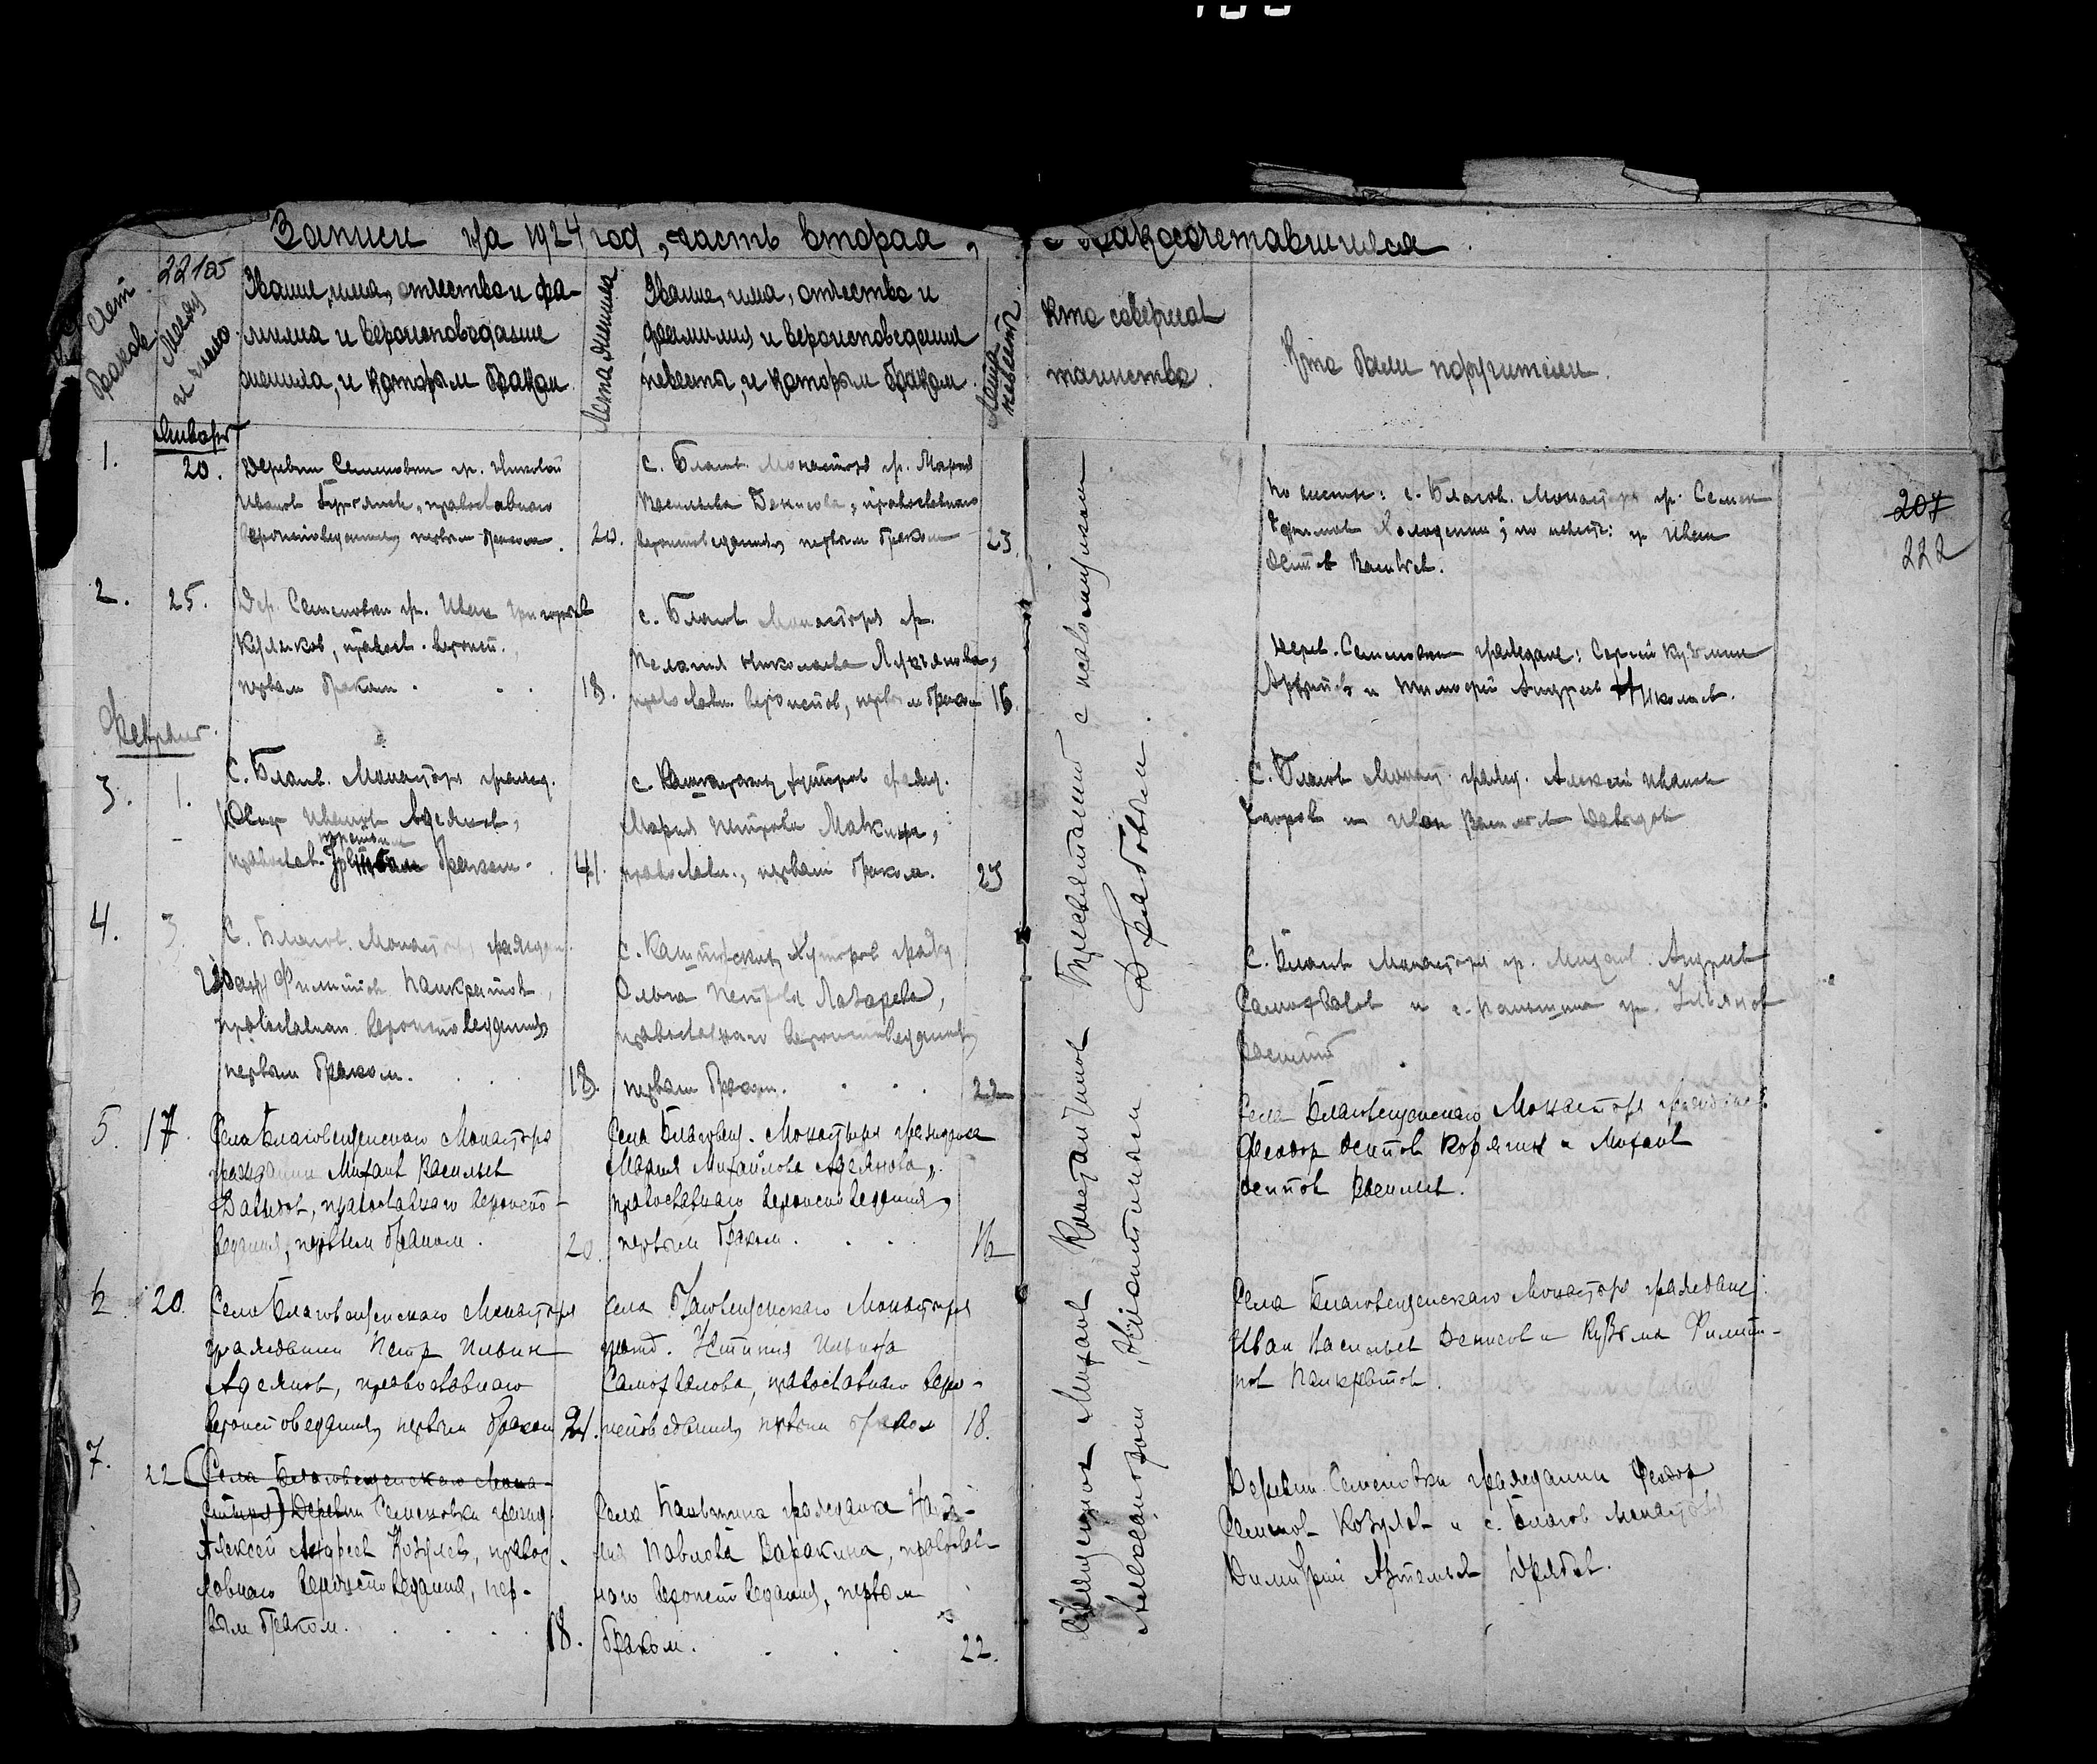 Записи на 1924 год, часть вторая, о бракосочетавшихся
22105
Счет браков
Месяц и число
Звание, имя, отчество и фа-
милия и вероисповедание
жениха, и которым браком
Лета жениха
Звание, имя, отчество и
фамилия и вероисповедания
невесты, и которым браком.
Лета невесты
Кто совершал
таинство.
Кто были поручители.
Январь
1.
20.
Деревни Семеновки гр. Николай
Иванов православного
вероисповедания, первым браком.
20.
с. Благов. Монастыря гр. Мария
Васильева Денисова, православного
вероисповедания, первым браком
23.
По жених: с. Благов. Монастыря гр. Семен
по невест: гр Иван
Васильев.
207
222
2.
25.
Дер. Семеновки гр. Иван Григорьев
Куликов, правосл. вероисп.,
первым браком.
18.
с. Благов. Монастыря гр.
Пелагия Николаева Лукьянова,
православн. вероиспов, первым браком
16.
Дерев. Семеновки граждане: Сергей Кузьмин
и Тимофей Андреев Николаев.
Февраль.
3.
1.
С. Благов. Монастыря гражд.
Иванов Адеянов,
православ. третьим браком.
41.
с. Каширских хуторов гражд.
Мария Петрова Мавкина,
православн., первым браком.
25
С. Благов Монаст. гражд. Алексей Иванов
Егоров и Иван Васильев Давыдов
4.
3.
С. Благов. Монастыря граждан.
Филиппов Панкратов,
православнаго вероисповедания,
первым браком.
18.
с. Каширских Хуторов гражд
Ольга Петрова Лазарева,
православнаго вероисповедания,
первым браком.
22
С. Благов Монастыря гр. Михаил Андреев
Самохвалов и с. гр. Ульянов
Василий
5.
17.
Села Благовещенскаго Монастыря
гражданин Михаил Васильев
Давыдов, православнаго вероиспо-
ведания, первым браком.
20.
Села Благовещ. Монастыря гражданка
Мария Михайлова Адеянова,
православнаго вероисповедания,
первым браком.
16
Села Благовещенскаго Монастыря граждане:
Феодор Осипов Корягин и Михаил
Осипов Васильев.
6
20.
Села Благовещенскаго Монастыря
гражданин Петр Ильин
Адеянов, православнаго
вероисповедания, первым браком
21.
Села Благовещенскаго Монастыря
гражд. Устиния Ильина
Самохвалова, православнаго веро-
исповедания, первым браком
18.
Села Благовещенскаго Монастыря граждане:
Иван Васильев Денисов и Кузьма Филип-
пов Панкратов.
7.
22
(Села Благовещенскаго Мона-
стыря) Деревни Семеновки гражд.
Алексей Андреев Козулев, правос-
лавнаго вероисповедания, пер-
вым браком.
18.
Села гражданка
Павлова Варакина, православ-
наго вероисповедания, первым
браком.
22.
Деревни Семеновки гражданин Феодор
Семенов Козулев и с. Благов Монастыря
Димитрий
Священник Михаил Константинов Пресвятский с псаломщиком
Александром Никитиным Любовым.